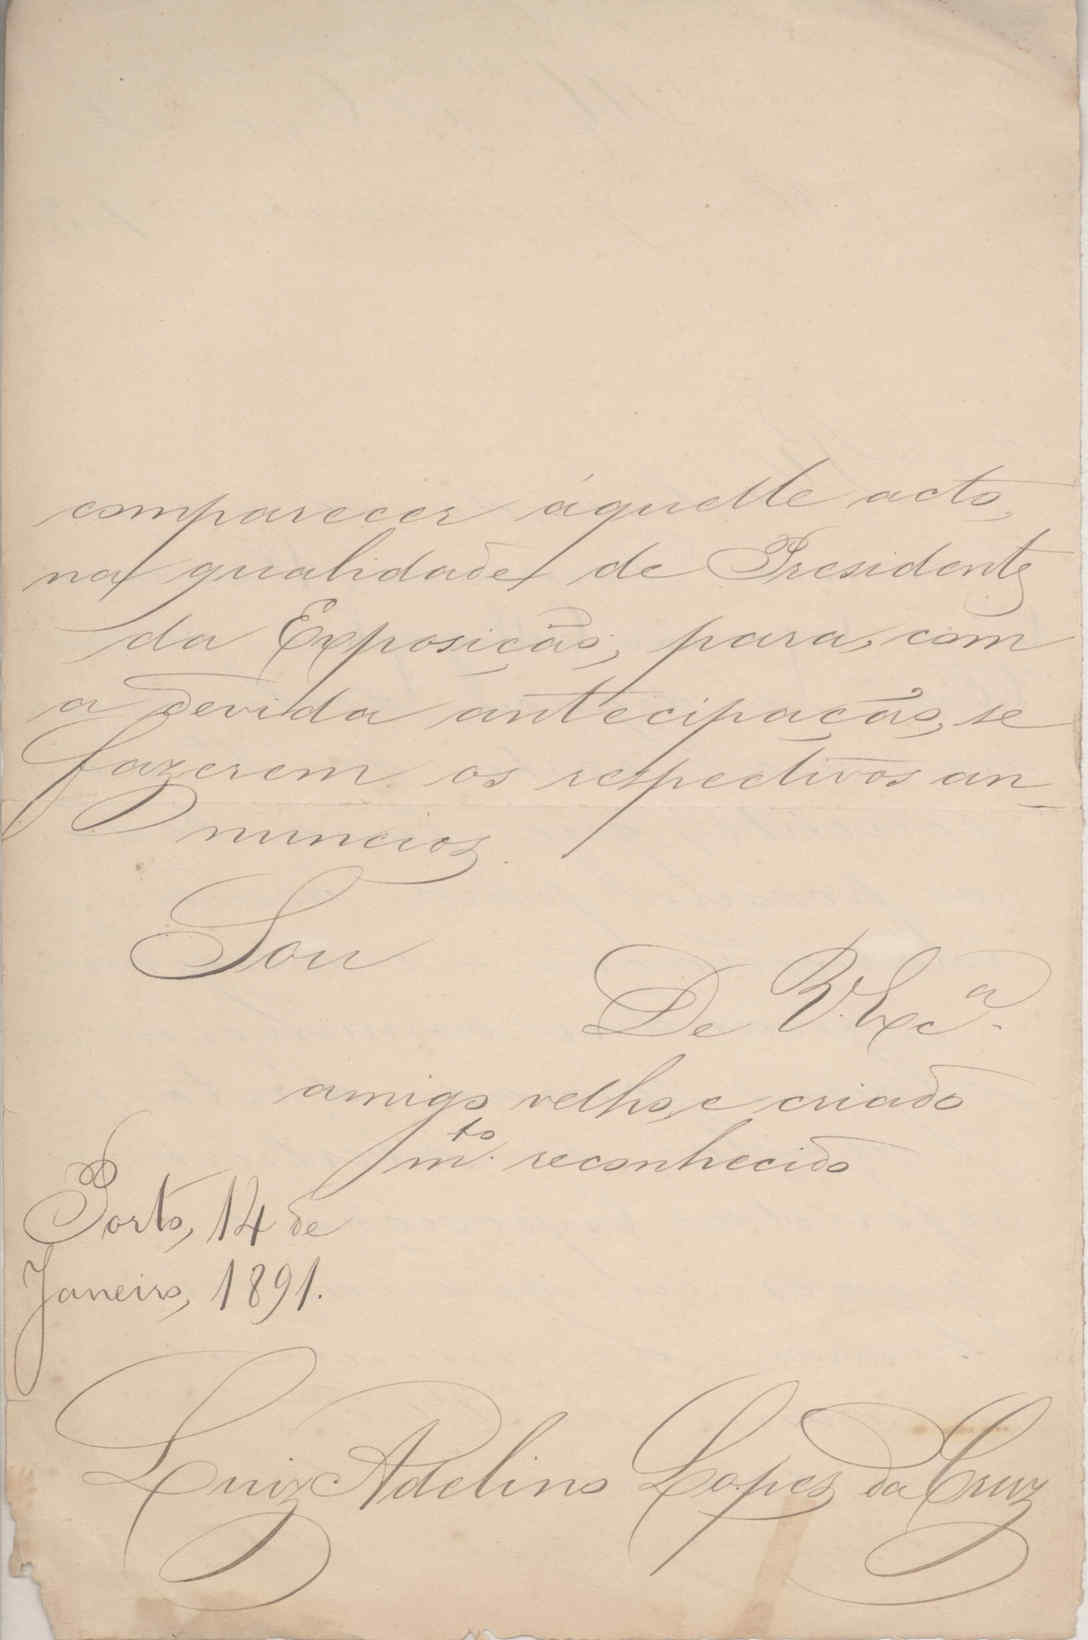 comparecer áquelle acto,
na qualidade de Presidente
da Exposição, para, com
a devida antecipação, se
fazerem os respectivos an-
nuncios.
Sou
De V. Excª.
amigo velho, e criado
m.to reconhecido
Porto, 14 de
Janeiro, 1891.
Luiz Adelino Lopes da Cruz